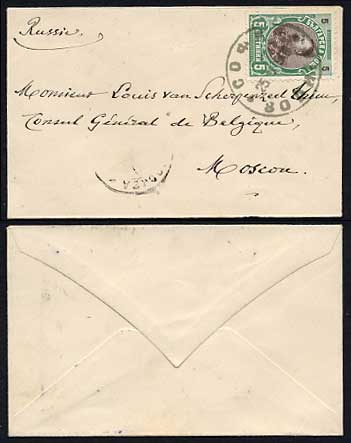 Russie.
5 5
Monsieur Louis van Scherpenzeel Thim,
Consul Général de Belgique,
Moscou.